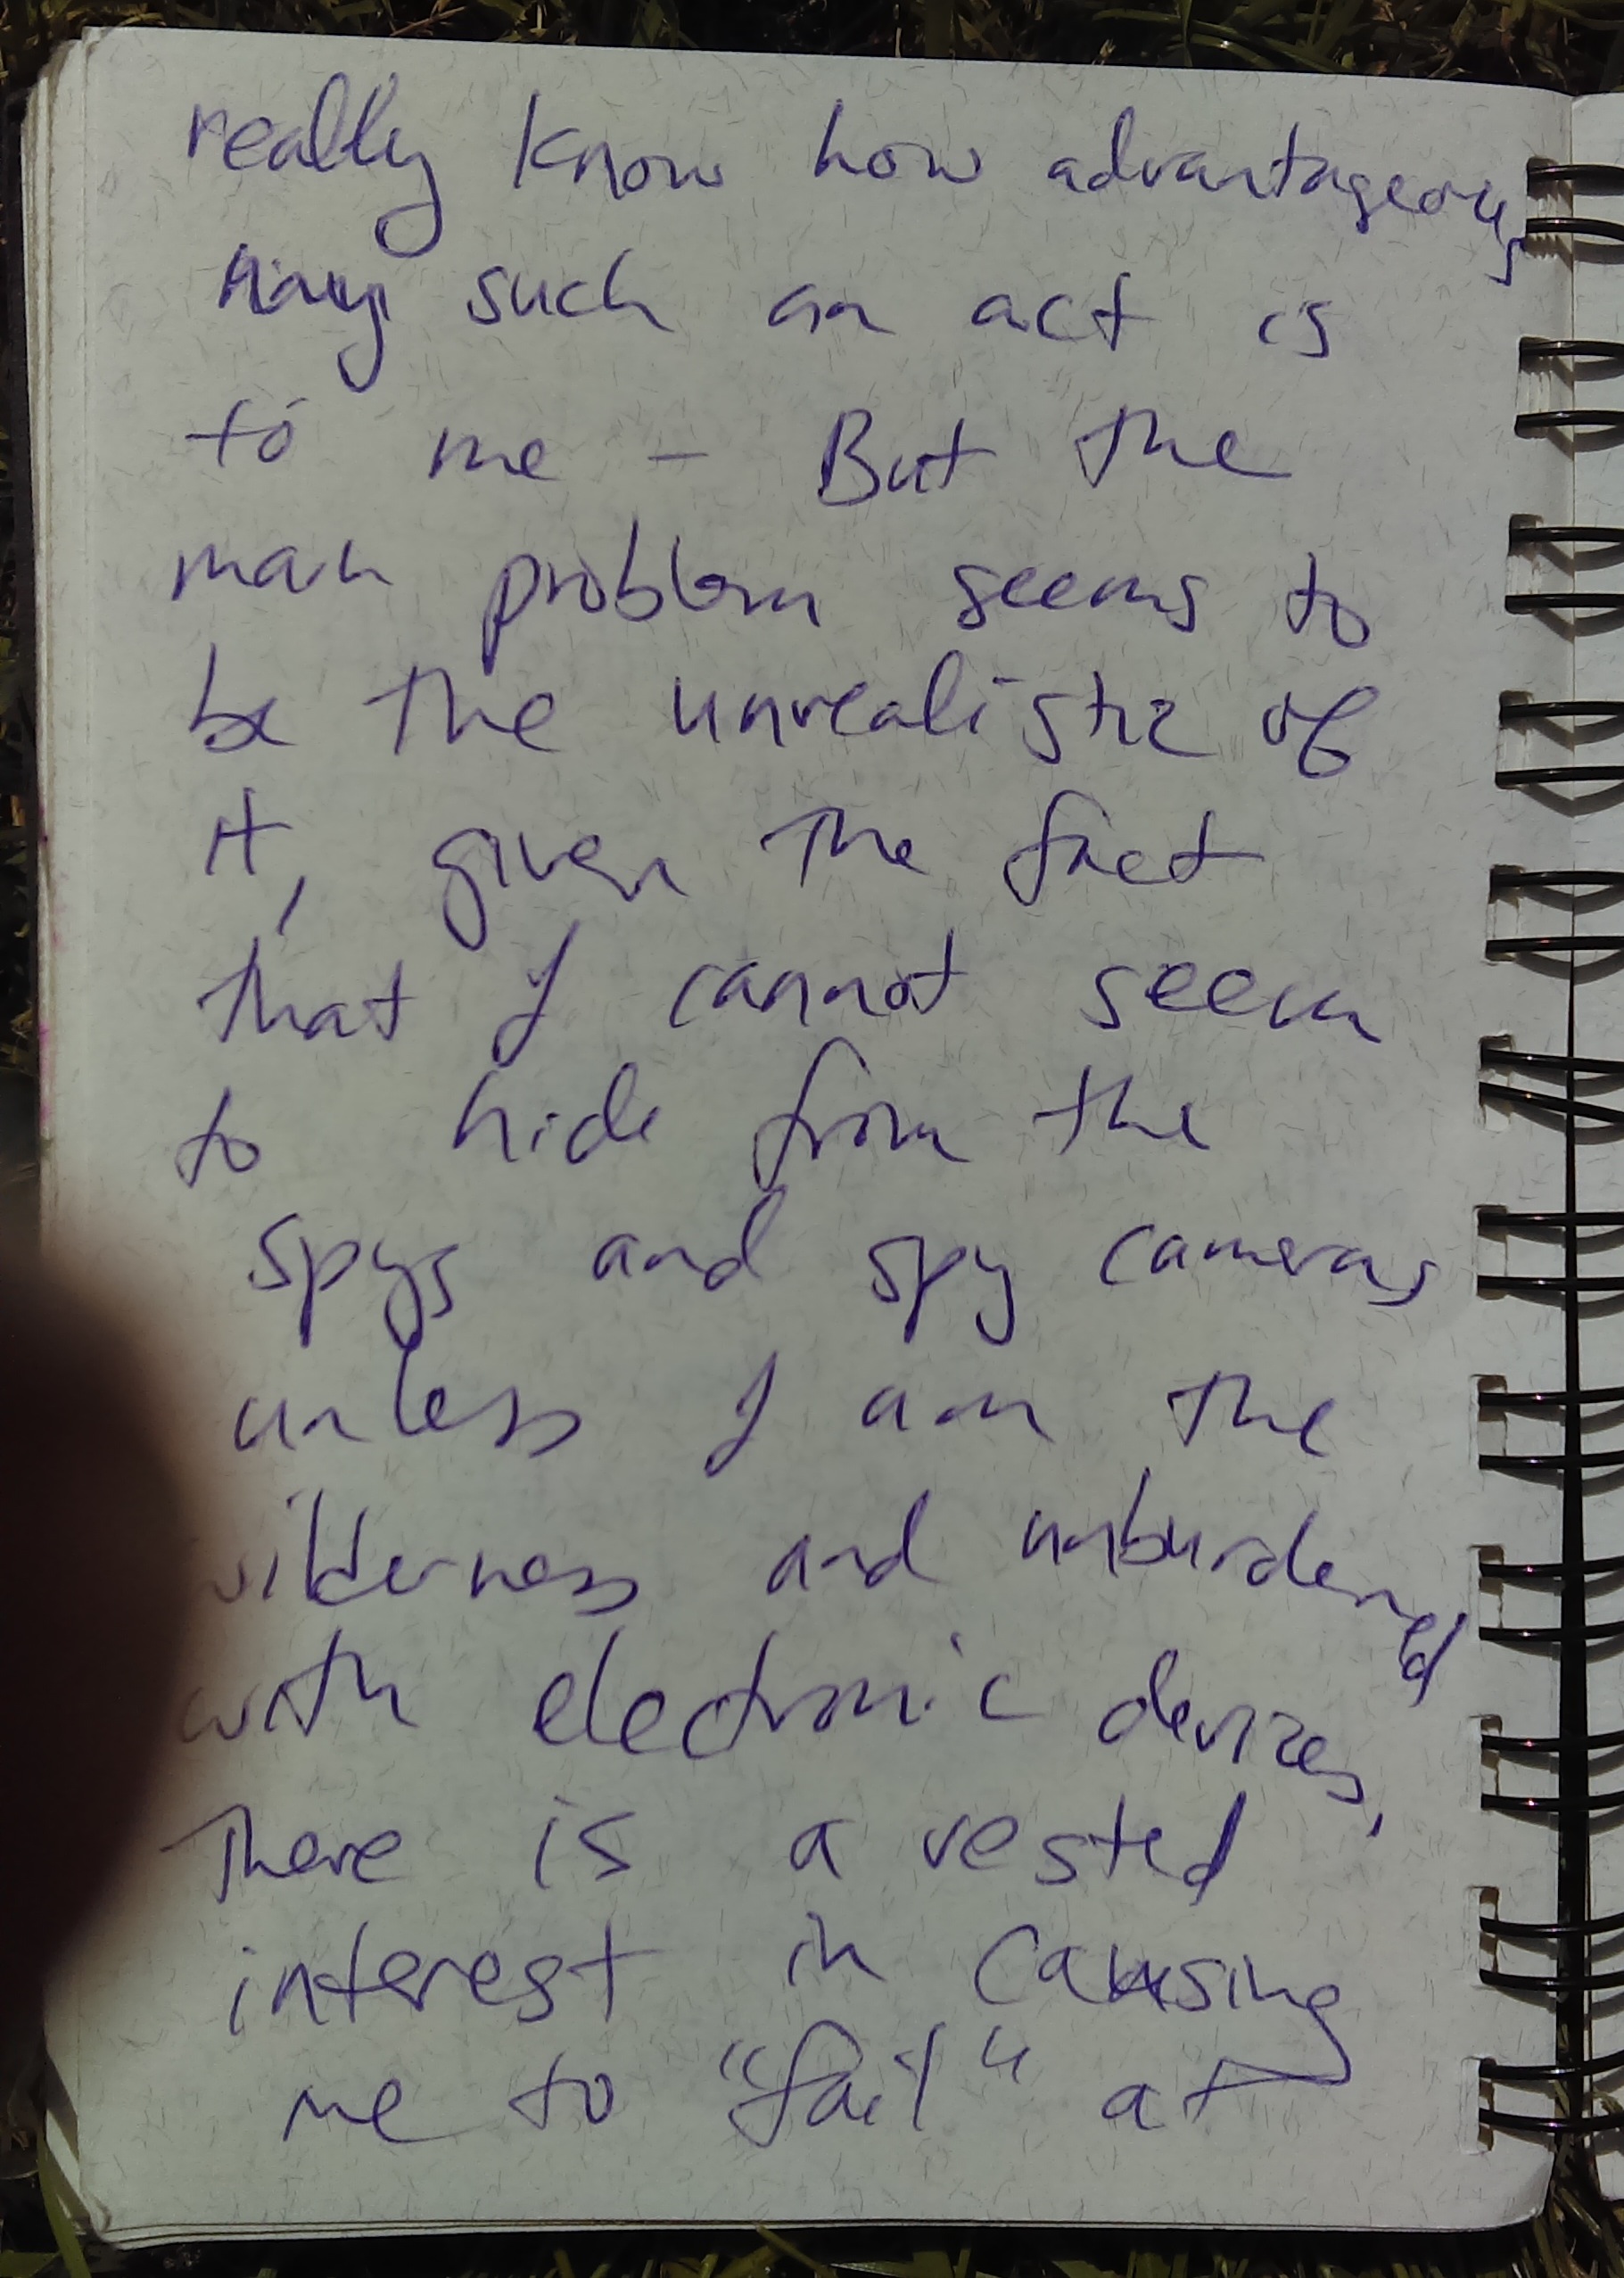 really know how advantageous
such an act is
to me - But the
main problem seems to
be the unrealistic of
it, given the fact
that I cannot seem
to hide from the
spys and spy cameras
unless I am the
wilderness and unburdened
with electronic devices,
There is a vested
interest in causing
me to "fail" at